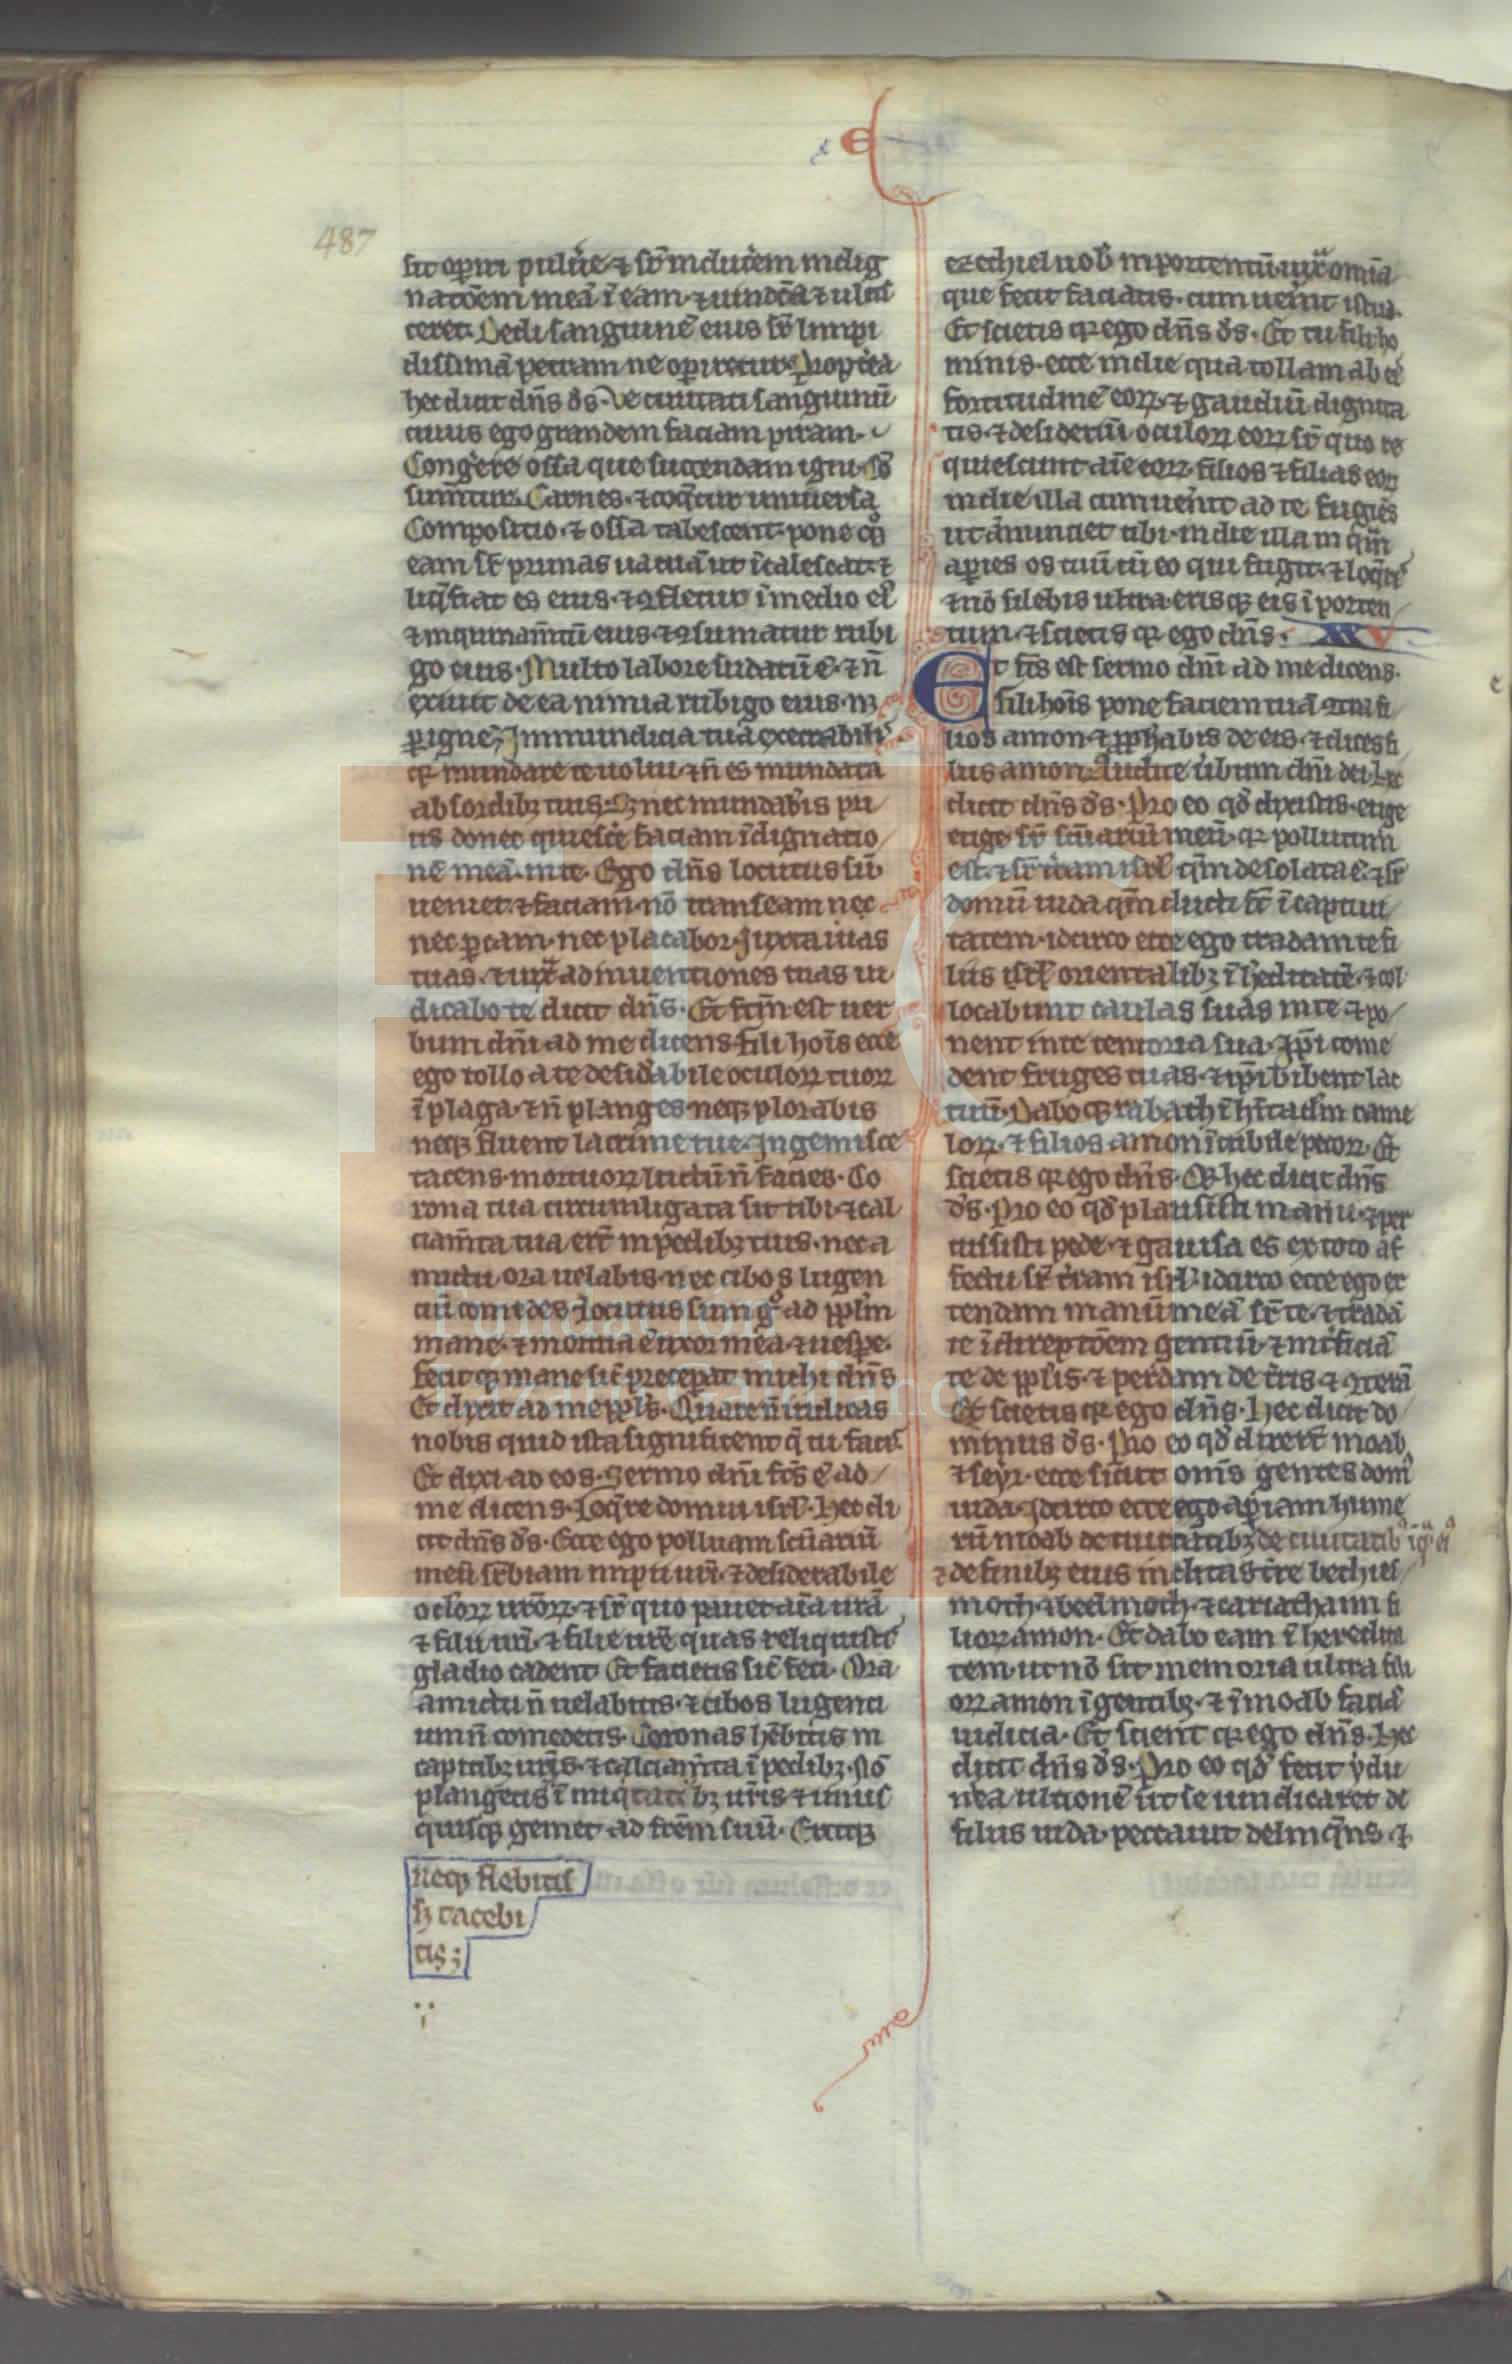 E
487
sit op̄iri pulu̾e ⁊ sr̄ inducerem indig
natōem meā ī eam · ⁊ uindc̄a ⁊ ulcis
cerer. Dedi sanguinē eius sr̄ limpi
dissimā petram ne op̄iretur. Propt̾ea
hec dicit dn̄s ds̄ · Ve ciuitati sanguinū
cuius ego grandem faciam piram ·
Congere ossa que succendam igni · 
Carnes · ⁊ coq̄tur uniuersa
Compositio · ⁊ ossa tabescent · pone qꝫ
eam sr̄ prunas uacuā ut īcalescat · ⁊
liq̄fiat es eius · ⁊ ꝯfletur ī medio ei᷒
⁊ inquinam̄tū eius · ⁊ ꝯsumatur rubi
go eius · Multo labore sudatū ē · ⁊ n̄
exiuit de ea nimia rubigo eius · n̄
ꝑ ignē · Immundicia tua execrabilis
qꝛ mundare te uolui · ⁊ n̄ es mundata
ab sordibꝫ tuis · Sꝫ nec mundab̾is pri
us donec quiesc̾e faciam īdignatio
nē meā in te · Ego dn̄s locutus sū
ueniet · ⁊ faciam · nō transeam nec
nec ꝑcam · nec placabor · Iuxta uias
tuas · ⁊ iux̄ adinuentiones tuas iu
dicabo te dicit dn̄s · Et fc̄m est uer
bum dn̄i ad me dicens · fili hoīs ecce
ego tollo a te desid̾abile oculoꝝ tuoꝝ
ī plaga · ⁊ n̄ planges neqꝫ plorabis
neqꝫ fluent lacrime tue · Ingemisce
tacens · mortuoꝝ luctū n̄ facies · Co
rona tua circumligata sit tibi · ⁊ cal
ciam̄ta tua er̄t in pedibꝫ tuis · nec a
mictu ora uelabis · nec cibos lugen
ciū comedes · Locutus sum g̊ ad ppl̄m
mane · ⁊ mortua ē uxor mea · ⁊ uesꝑe ·
feciqꝫ mane sic̄ precep̾at michi dn̄s
Et dixit ad me ppl̄s · Quare n̄ indicas
nobis quid ista significent q̄ tu facis
Et dixi ad eos · Sermo dn̄i fc̄s ē ad
me dicens · Loq̄re domui isrl̄ · Hec di
cit dn̄s ds̄ · Ecce ego polluam scūariū
meū suꝑbiam imꝑii ur̄i · ⁊ desiderabile
oclōꝝ ur̄oꝝ · ⁊ sr̄ quo pauet aīa ur̄a
⁊ filii ur̄i · ⁊ filie ur̄e quas reliquistis
gladio cadent · Et facietis sic̄ feci · Ora
amictu n̄ uelabitis · ⁊ cibos lugenti
um n̄ comedetis · Coronas hēbitis in
capitibꝫ ur̄is · ⁊ calciam̄ta ī pedibꝫ · Nō
plangetis ī iniq̄tatibꝫ ur̄is ⁊ unus
quisqꝫ gemet ad fr̄em suū · Eritqꝫ
neqꝫ flebitis
sꝫ tacebi
tis ;
ezechiel uob̄ in portentū · iux̄ omīa
que fecit faciatis · cum uen̾it istud ·
Et scietis qꝛ ego dn̄s ds̄ · Et tu fili ho
minis · ecce in die qua tollam ab eis
fortitudinē eoꝝ · ⁊ gaudiū dignita
tis · ⁊ desideriū oculoꝝ eoꝝ sr̄ quo re
quiescunt aīe eoꝝ · filios ⁊ filias eoꝝ
in die illa cum uen̾it ad te fugiēs
ut ānunciet tibi · in die illa inq̄m
ap̾ies os tuū cū eo qui fugit · ⁊ loq̄ris
⁊ nō silebis ultra · erisqꝫ eis ī porten
tum · ⁊ scietis qꝛ ego dn̄s · XXV
Et fc̄s est sermo dn̄i ad me dicens ·
fili hoīs pone faciem tuā ꝯtra fi
lios amon · ⁊ ꝓph̄abis de eis · ⁊ dices fi
liis amon · Audite ūbum dn̄i dei · Hec
dicit dn̄s ds̄ · Pro eo qd̄ dixistis · euge
euge sr̄ scūariū meū · qꝛ pollutum
est · ⁊ sr̄ tr̄am isrl̄ qm̄ desolata ē · ⁊ sr̄
domū iuda qm̄ ducti st̄ ī captiui
tatem · idcirco ecce ego tradam te fi
liis isrl̄ orientalibꝫ ī h̾editatē · ⁊ col
locabunt caulas suas in te · ⁊ po
nent in te tentoria sua · Ip̄i come
dent fruges tuas · ⁊ ip̄i bibent lac
tuū · Daboqꝫ rabath ī h̾itac̄lm came
loꝝ · ⁊ filios amon ī cubile pecoꝝ · Et
scietis qꝛ ego dn̄s · Qꝛ hec dicit dn̄s
ds̄ · Pro eo qd̄ plausisti manu · ⁊ per
cussisti pede · ⁊ gauisa es ex toto af
fectu sr̄ tr̄am isrl̄ · idcirco ecce ego ex
tendam manū meā sr̄ te · ⁊ tradā
te ī direptōem gentiū · ⁊ int̾ficiā
te de ppl̄is · ⁊ perdam de tr̄is · ⁊ ꝯterā
Et scietis qꝛ ego dn̄s · Hec dicit do
minus ds̄ · Pro eo qd̄ dixer̄t moab
⁊ seyr · ecce sicut om̄s gentes dom᷒
iuda · Idcirco ecce ego ap̾iam hume
rū moab de ciuitatibꝫ de ciuitatibꝫ
⁊ de finibꝫ eius inclitas tr̄e bethies
moth · ⁊ beelmoth · ⁊ cariathaim fi
lioꝝ amon · Et dabo eam ī heredita
tem · ut nō sit memoria ultra fili
oꝝ amon ī gentibꝫ · ⁊ ī moab faciā
iudicia · Et scient qꝛ ego dn̄s · Hec
dicit dn̄s ds̄ · Pro eo qd̄ fecit ydu
mea ultionē ut se uindicaret de
filiis iuda · peccauit delinq̄ns · ⁊
FLG
Fundación
Lázaro Galdiano